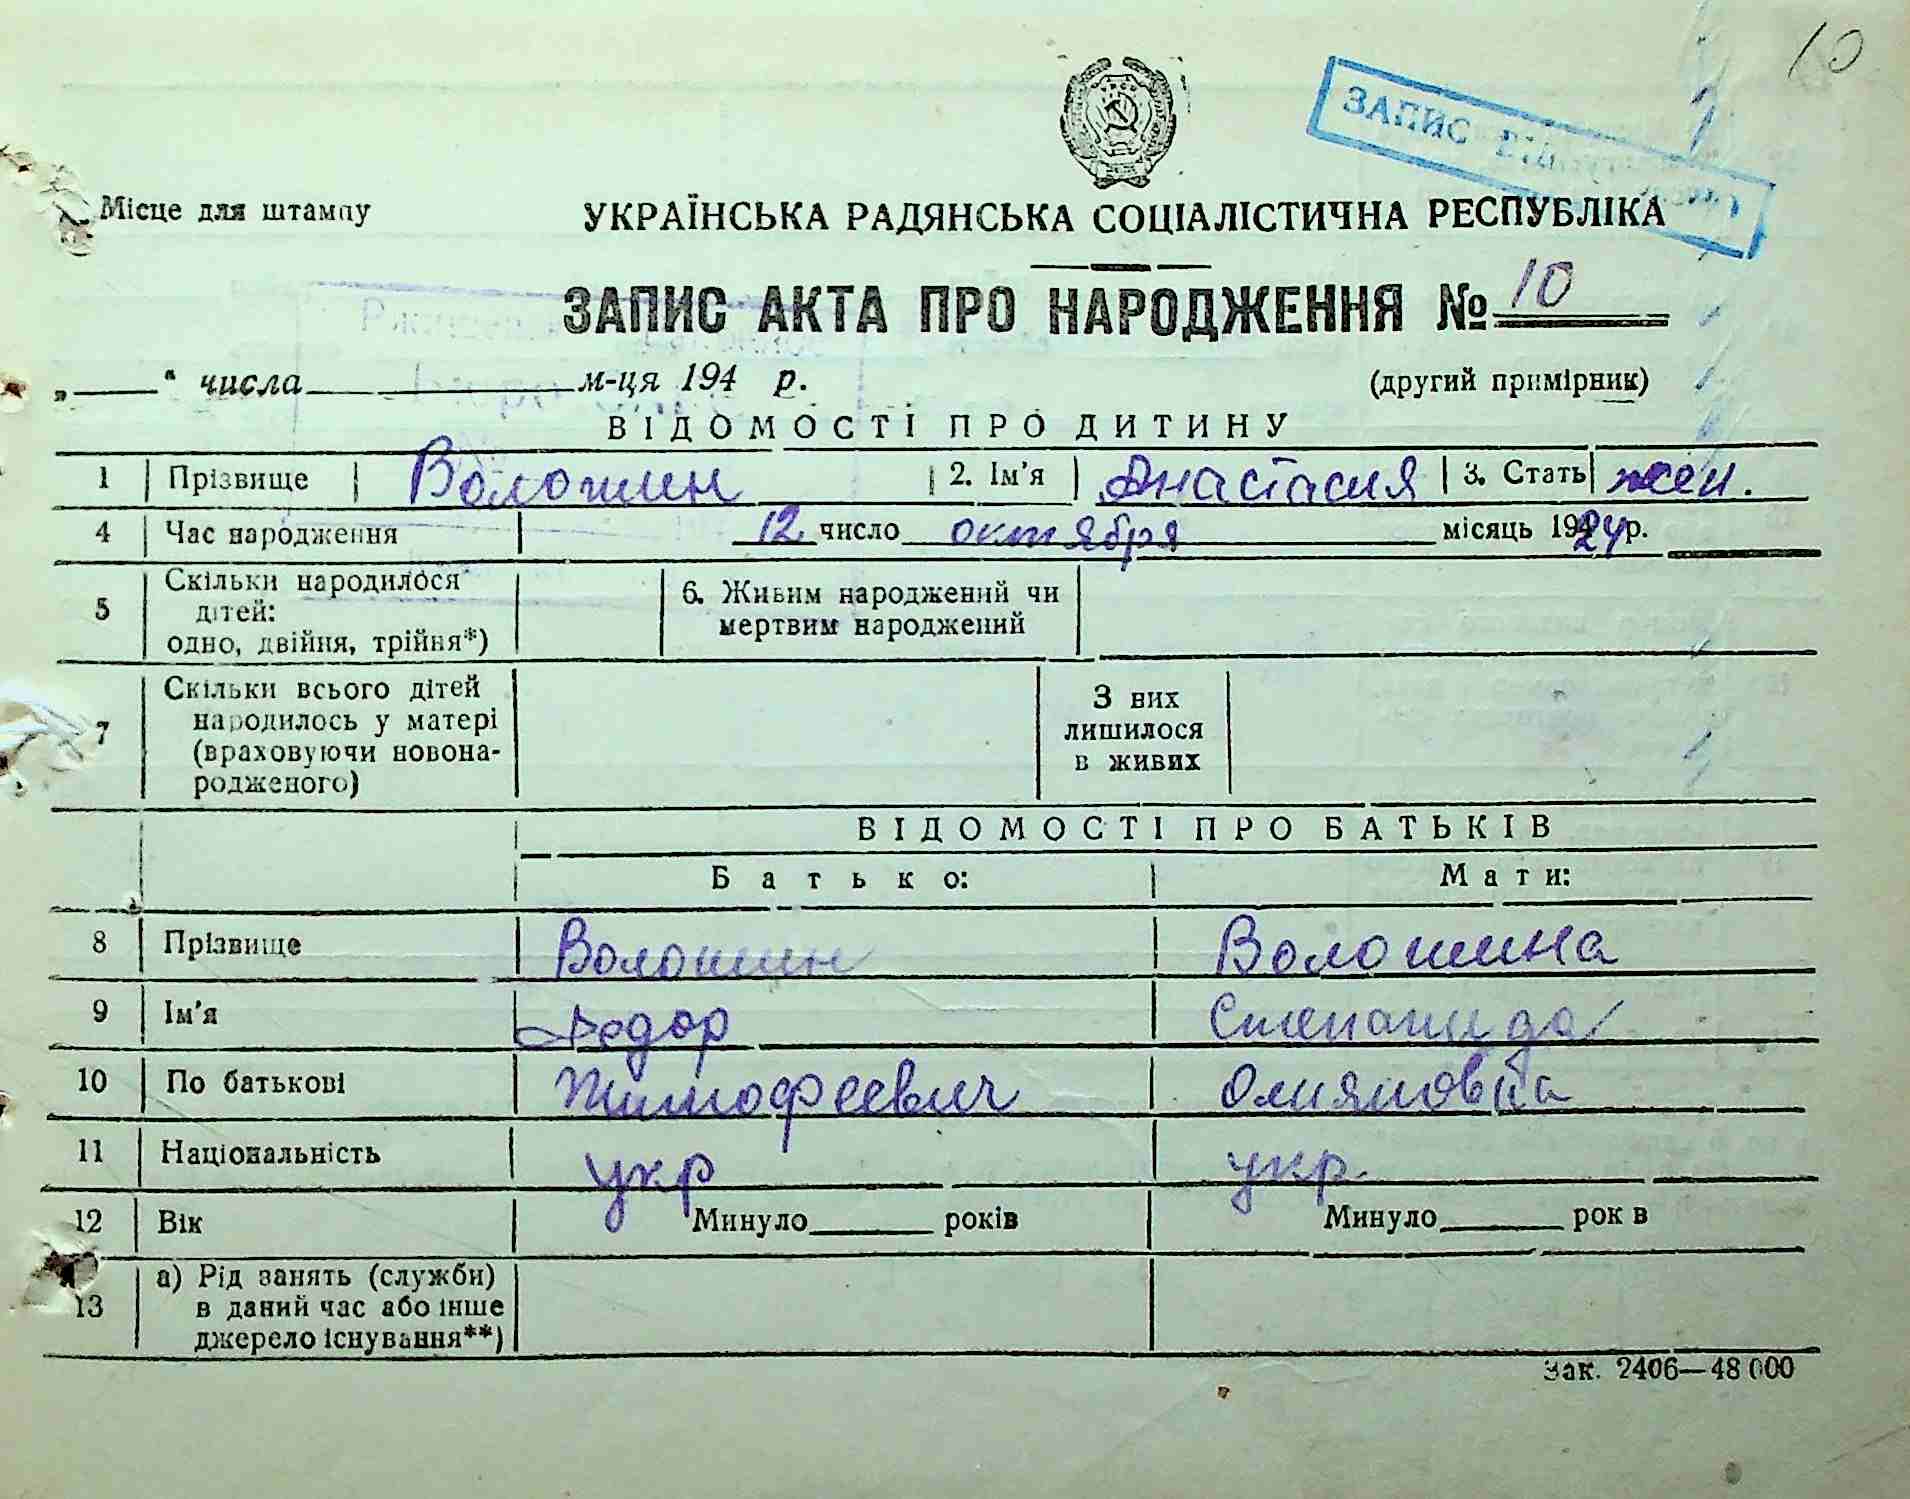 10
ЗАПИС
Місце для штампу
УКРАЇНСЬКА РАДЯНСЬКА СОЦІАЛІСТИЧНА РЕСПУБЛІКА
ЗАПИС АКТА ПРО НАРОДЖЕННЯ № 10
„ “ числа м-ця 194 р. (другий примірник)
ВІДОМОСТІ ПРО ДИТИНУ
1 Прізвище Волошин 2. Ім'я Анастасия 3. Стать жен.
4 Час народження 12 число октября місяць 1924 р.
Скільки народилося
5 дітей: 6. Живим народжений чи
одно, двійня, трійня*) мертвим народжений
Скільки всього дітей З вих
7 народилось у матері лишилося
(враховуючи новона- в живих
родженого)
ВІДОМОСТІ ПРО БАТЬКІВ
Батько: Мати:
8 Прізвище Волошин Волошина
9 Ім'я Федор Степанида
10 По батькові Тимофеевич
11 Національність укр укр.
12 Вік Минуло років Минуло рок в
а) Рід занять (служби)
13 в даний час або інше
джерело існування**)
Зак. 2406—48 000